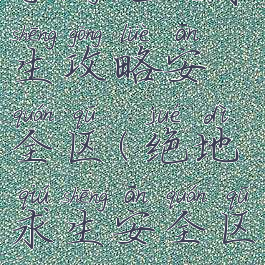 shēng gōng lüè ān
生攻略安
quán qū jué dì
全区(绝地
qiú shēng ān quán qū
求生安全区